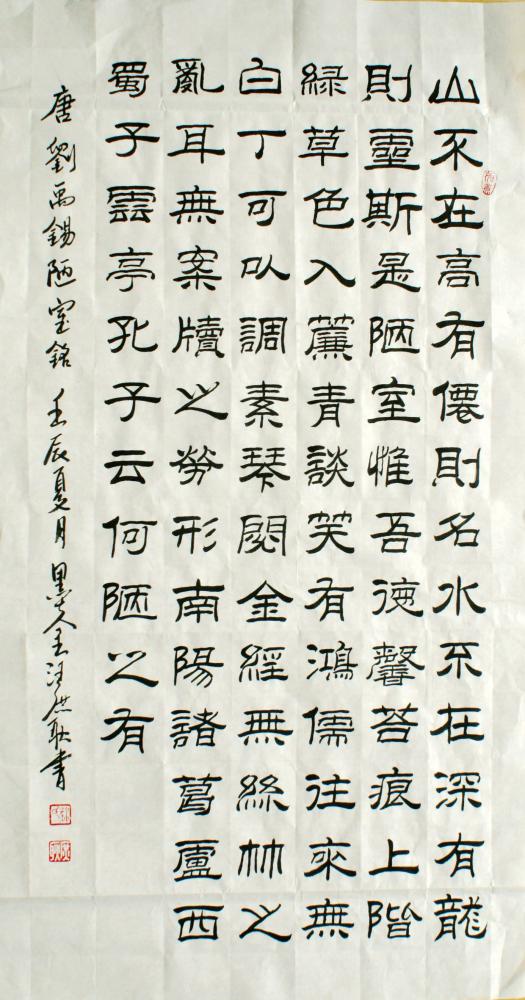 山不在高有僊則名水不在深有龍
則靈斯是陋室惟吾德馨苔痕上階
緑草色入簾青談笑有鴻儒往來無
白丁可以調素琴閱金經無絲竹之
亂耳無案牘之勞形南陽諸葛廬西
蜀子雲亭孔子云何陋之有
唐劉禹錫陋室銘 壬辰夏月 書